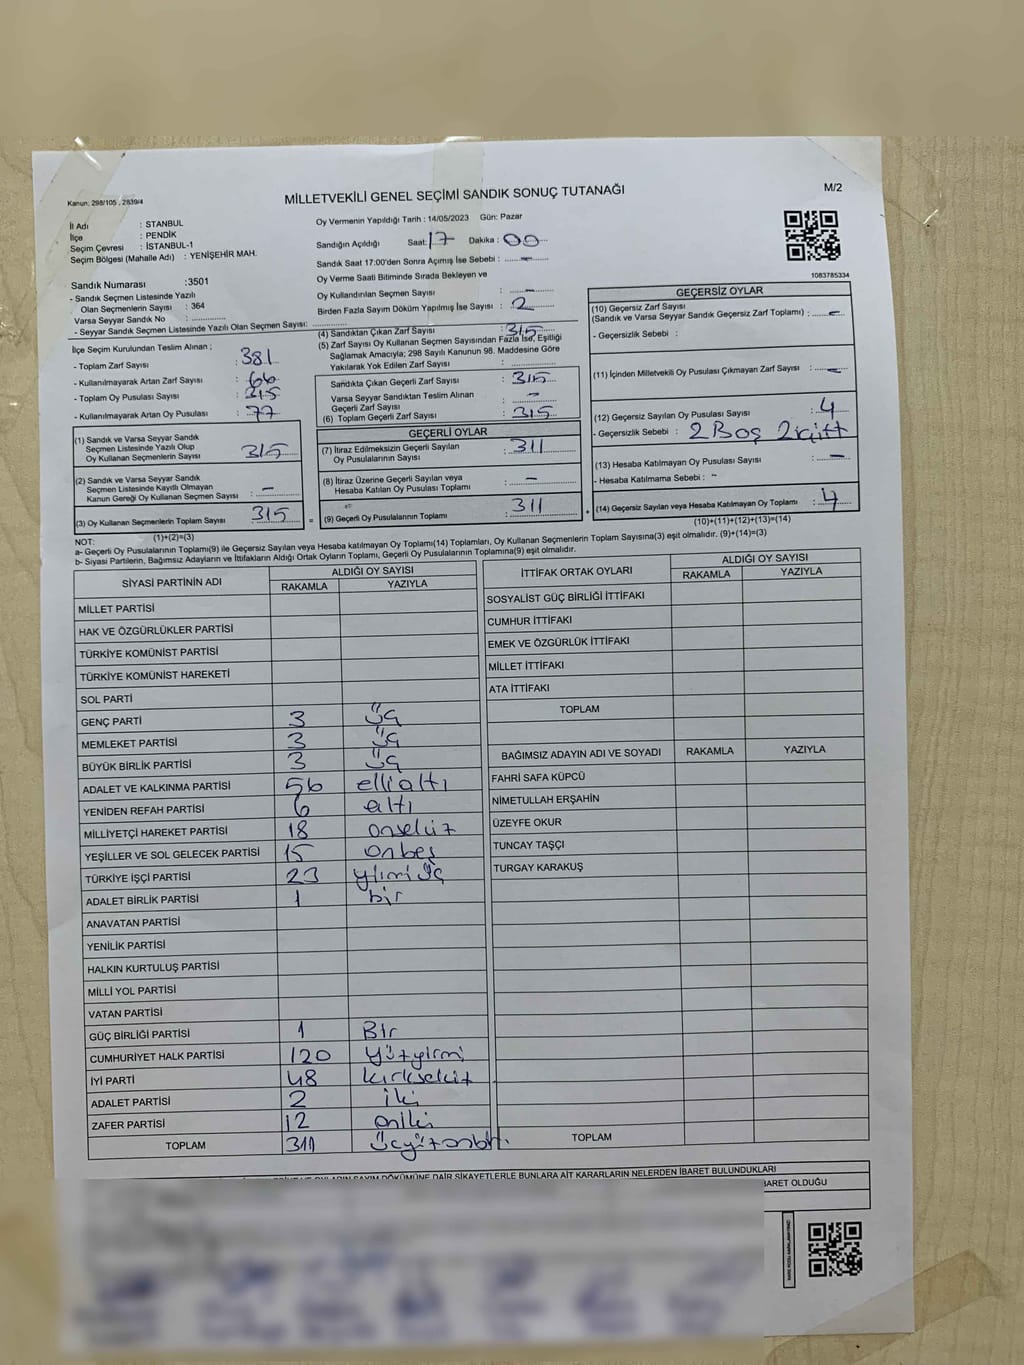 Kanun: 298/105 , 2839/4
MİLLETVEKİLİ GENEL SEÇİMİ SANDIK SONUÇ TUTANAĞI
M/2
İl Adı : STANBUL
İlçe : PENDİK
Seçim Çevresi : İSTANBUL-1
Seçim Bölgesi (Mahalle Adı) : YENİŞEHİR MAH.
Sandık Numarası :3501
- Sandık Seçmen Listesinde Yazılı
Olan Seçmenlerin Sayısı : 364
Varsa Seyyar Sandık No :
- Seyyar Sandık Seçmen Listesinde Yazılı Olan Seçmen Sayısı:
Oy Vermenin Yapıldığı Tarih : 14/05/2023 Gün: Pazar
Sandığın Açıldığı Saat: 17 Dakika : 00
Sandık Saat 17:00'den Sonra Açımış İse Sebebi : -
Oy Verme Saati Bitiminde Sırada Bekleyen ve
Oy Kullandırılan Seçmen Sayısı : -
Birden Fazla Sayım Döküm Yapılmış İse Sayısı : 2
1083785334
İlçe Seçim Kurulundan Teslim Alınan ;
- Toplam Zarf Sayısı : 381
- Kullanılmayarak Artan Zarf Sayısı : 66
- Toplam Oy Pusulası Sayısı : 315
- Kullanılmayarak Artan Oy Pusulası : 77
(1) Sandık ve Varsa Seyyar Sandık
Seçmen Listesinde Yazılı Olup
Oy Kullanan Seçmenlerin Sayısı : 315
(2) Sandık ve Varsa Seyyar Sandık
Seçmen Listesinde Kayıtlı Olmayan
Kanun Gereği Oy Kullanan Seçmen Sayısı : -
(3) Oy Kullanan Seçmenlerin Toplam Sayısı : 315
(1)+(2)=(3)
(4) Sandıktan Çıkan Zarf Sayısı : 315
(5) Zarf Sayısı Oy Kullanan Seçmen Sayısından Fazla İse, Eşitliği
Sağlamak Amacıyla; 298 Sayılı Kanunun 98. Maddesine Göre
Yakılarak Yok Edilen Zarf Sayısı :
Sandıkta Çıkan Geçerli Zarf Sayısı : 315
Varsa Seyyar Sandıktan Teslim Alınan
Geçerli Zarf Sayısı : -
(6) Toplam Geçerli Zarf Sayısı : 315
GEÇERLİ OYLAR
(7) İtiraz Edilmeksizin Geçerli Sayılan
Oy Pusulalarının Sayısı : 311
(8) İtiraz Üzerine Geçerli Sayılan veya
Hesaba Katılan Oy Pusulası Toplamı : -
= (9) Geçerli Oy Pusulalarının Toplamı : 311
GEÇERSİZ OYLAR
(10) Geçersiz Zarf Sayısı
(Sandık ve Varsa Seyyar Sandık Geçersiz Zarf Toplamı) : -
- Geçersizlik Sebebi :
(11) İçinden Milletvekili Oy Pusulası Çıkmayan Zarf Sayısı : -
(12) Geçersiz Sayılan Oy Pusulası Sayısı : 4
- Geçersizlik Sebebi : 2 Boş 2 çift
(13) Hesaba Katılmayan Oy Pusulası Sayısı : -
- Hesaba Katılmama Sebebi : -
+ (14) Geçersiz Sayılan veya Hesaba Katılmayan Oy Toplamı : 4
(10)+(11)+(12)+(13)=(14)
NOT:
a- Geçerli Oy Pusulalarının Toplamı(9) ile Geçersiz Sayılan veya Hesaba Katılmayan Oy Toplamı(14) Toplamları, Oy Kullanan Seçmenlerin Toplam Sayısına(3) eşit olmalıdır. (9)+(14)=(3)
b- Siyasi Partilerin, Bağımsız Adayların ve İttifakların Aldığı Ortak Oyların Toplamı, Geçerli Oy Pusulalarının Toplamına(9) eşit olmalıdır.
SİYASİ PARTİNİN ADI ALDIĞI OY SAYISI
RAKAMLA YAZIYLA
MİLLET PARTİSİ
HAK VE ÖZGÜRLÜKLER PARTİSİ
TÜRKİYE KOMÜNİST PARTİSİ
TÜRKİYE KOMÜNİST HAREKETİ
SOL PARTİ
GENÇ PARTİ 3 üç
MEMLEKET PARTİSİ 3 üç
BÜYÜK BİRLİK PARTİSİ 3 üç
ADALET VE KALKINMA PARTİSİ 56 elli altı
YENİDEN REFAH PARTİSİ 6 altı
MİLLİYETÇİ HAREKET PARTİSİ 18 onsekiz
YEŞİLLER VE SOL GELECEK PARTİSİ 15 onbeş
TÜRKİYE İŞÇİ PARTİSİ 23 yirmi üç
ADALET BİRLİK PARTİSİ 1 bir
ANAVATAN PARTİSİ
YENİLİK PARTİSİ
HALKIN KURTULUŞ PARTİSİ
MİLLİ YOL PARTİSİ
VATAN PARTİSİ
GÜÇ BİRLİĞİ PARTİSİ 1 Bir
CUMHURİYET HALK PARTİSİ 120 yüzyirmi
İYİ PARTİ 48 kırksekiz
ADALET PARTİSİ 2 iki
ZAFER PARTİSİ 12 oniki
TOPLAM 311 üçyüzonbir.
İTTİFAK ORTAK OYLARI ALDIĞI OY SAYISI
RAKAMLA YAZIYLA
SOSYALİST GÜÇ BİRLİĞİ İTTİFAKI
CUMHUR İTTİFAKI
EMEK VE ÖZGÜRLÜK İTTİFAKI
MİLLET İTTİFAKI
ATA İTTİFAKI
TOPLAM
BAĞIMSIZ ADAYIN ADI VE SOYADI RAKAMLA YAZIYLA
FAHRİ SAFA KÜPCÜ
NİMETULLAH ERŞAHİN
ÜZEYFE OKUR
TUNCAY TAŞÇI
TURGAY KARAKUŞ
TOPLAM
SAYIM DÖKÜMÜNE DAİR ŞİKAYETLERLE BUNLARA AİT KARARLARIN NELERDEN İBARET BULUNDUKLARI
BARET OLDUĞU